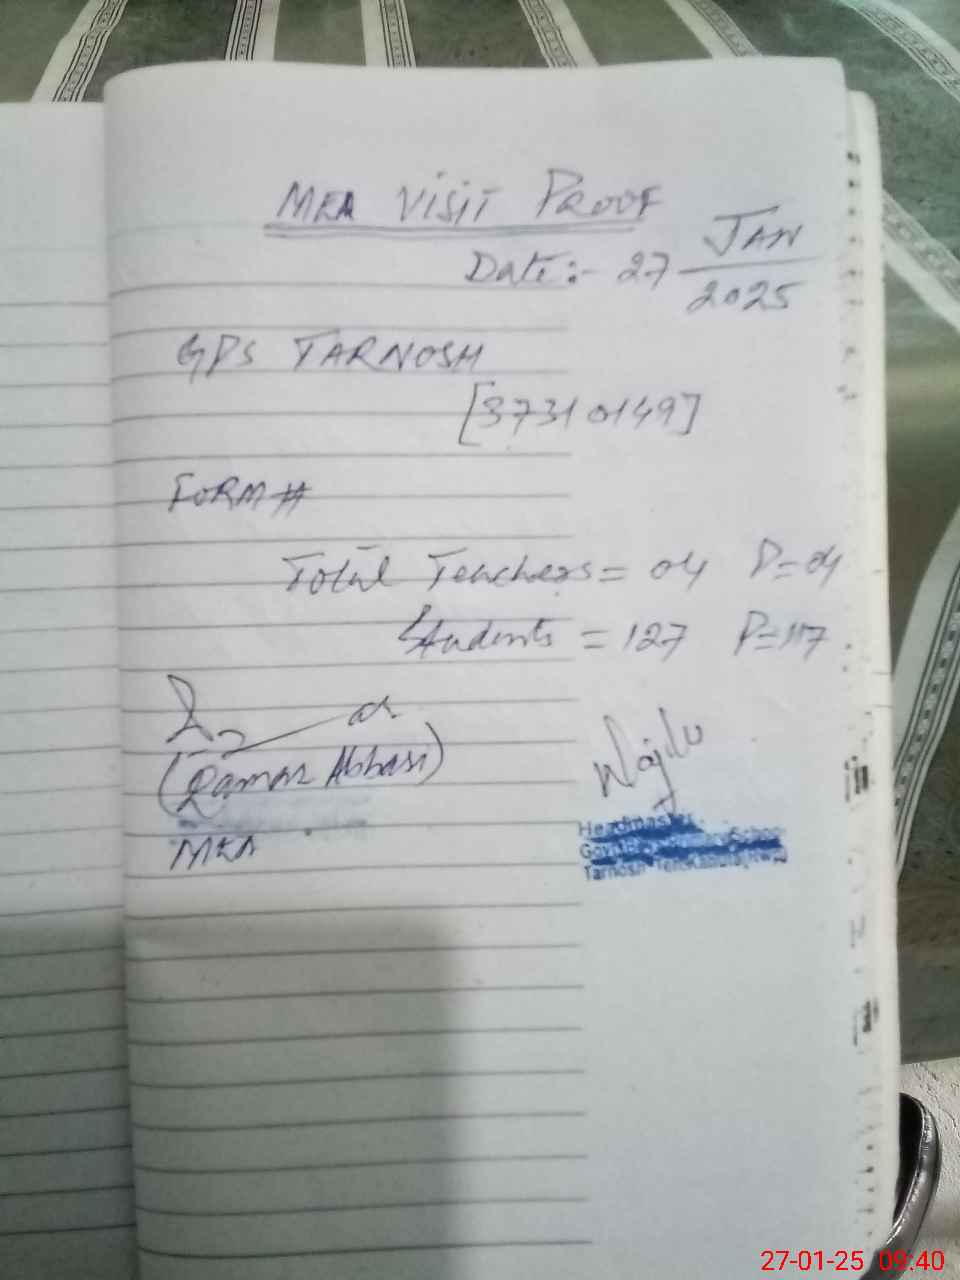 MEA VISIT PROOF
Date:- 27 JAN
2025
GPS TARNOSH
[37310149]
FORM #
Total Teachers = 04 P=04
Students = 127 P=117
(Qamar Abbasi)
MEA
Headmaster
Tarnosh
27-01-25 09:40